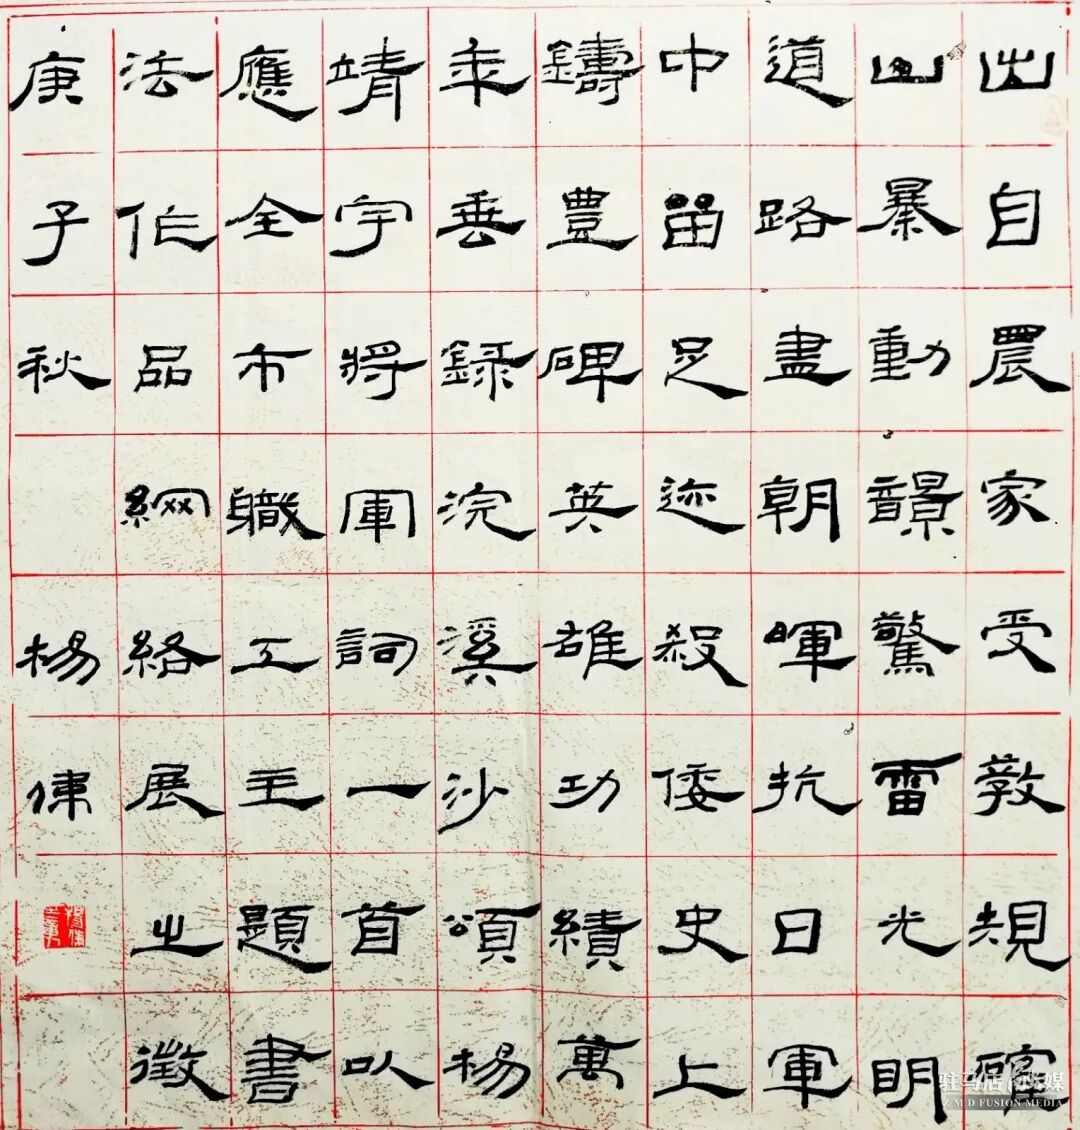 出自農家受教規確
山暴動響驚雷光明
道路盡朝暉抗日軍
中留足迹殺倭史上
鑄豐碑英雄功績萬
年垂錄浣溪沙頌楊
靖宇將軍詞一首以
應全市職工主題書
法作品網絡展之徵
庚子秋 楊偉
驻马店融媒
Z M D FUSION MEDIA